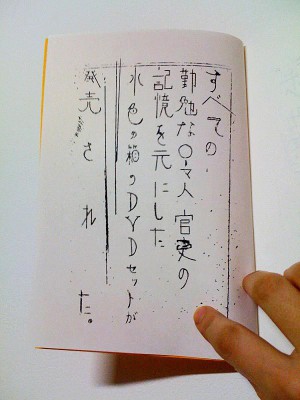 すべての
勤勉な○マ人官吏の
記憶を元にした
水色の箱のDVDセットが
発売された。